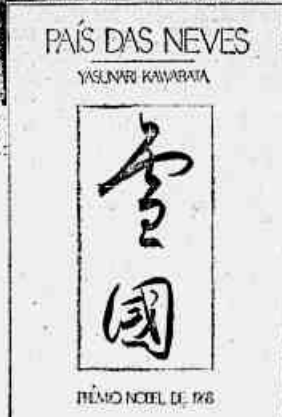 PAÍS DAS NEVES
YASUNARI KAWABATA
雪
國
PRÊMIO NOBEL DE 1968